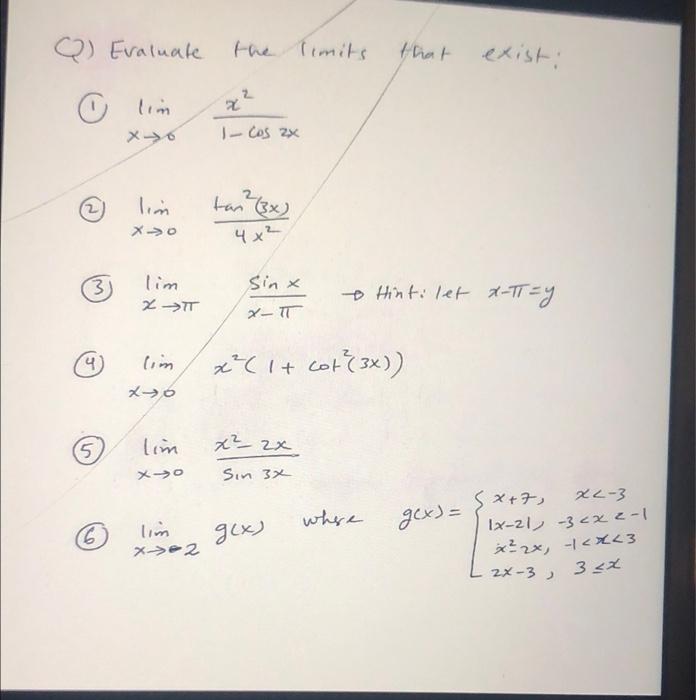 Q) Evaluate the limits that exist:
① lim x→0 x² / 1 - cos 2x
② lim x→0 tan²(3x) / 4x²
③ lim x→π sin x / x-π → Hint: let x-π=y
④ lim x→0 x²(1 + cot²(3x))
⑤ lim x→0 x²-2x / sin 3x
⑥ lim x→-2 g(x) where g(x) = { x+7, x<-3
|x-2|, -3<x<-1
x²-2x, -1<x<3
2x-3, 3≤x